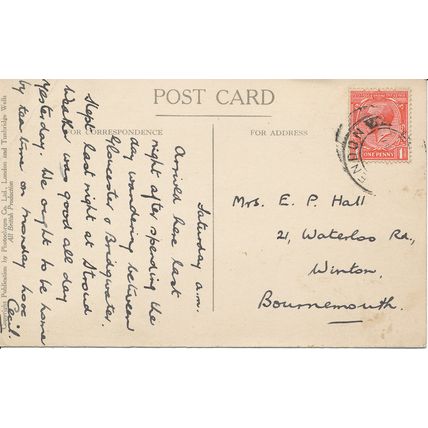 POST CARD
FOR CORRESPONDENCE
FOR ADDRESS
Saturday a.m.
Arrived here last
night after spending the
day wandering between
Gloucester & Bridgwater.
Slept last night at Stroud
Weather was good all day
yesterday. We ought to be home
by tea time on Monday love
Cecil.
Mrs. E. P. Hall
21, Waterloo Rd.,
Winton,
Bournemouth.
Publication by Photochrom Co., Ltd., London and Tunbridge Wells
All British Production
ONE PENNY
1